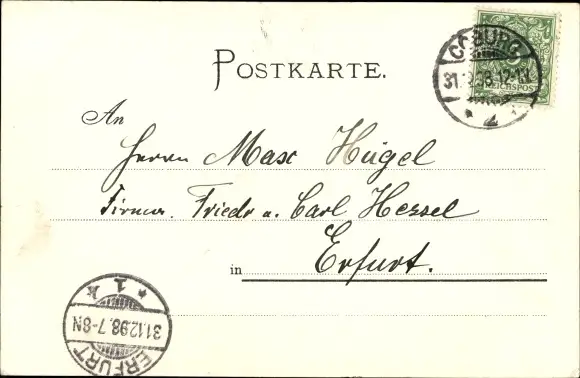 POSTKARTE.
COBURG
31.12.98. 12-1N.
2
REICHSPOST
An
Herrn Max Hügel
Firma. Friedr u. Carl Hessel
in Erfurt.
ERFURT
31.12.98. 7-8N
* 1 k